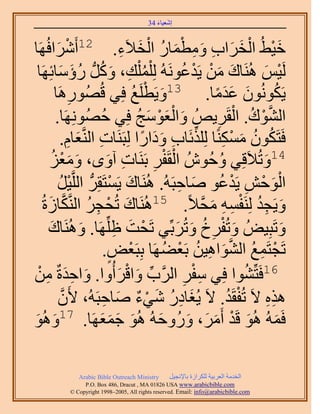 إشعياء 34
خَيْطُ الْخَرَابِ وَمِطْمَارُ الْخَلاَءِ. 12أَشْرَافُهَا
لَيْسَ هُنَاكَ مَنْ يَدْعُونَهُ لِلْمُلْكِ، وَكُلُّ رُؤَسَائِهَا
يَكُونُونَ عَدَمًا. 13وَيَطْلَعُ فِي قُصُورِهَا
الشَّوْكُ. الْقَرِيصُ وَالْعَوْسَجُ فِي حُصُونِهَا.
فَتَكُونُ مَسْكِنًا لِلذِّئَابِ وَدَارًا لِبَنَاتِ النَّعَامِ.
14وَتُلاَقِي وُحُوشُ الْقَفْرِ بَنَاتِ آوَى، وَمَعْزُ
الْوَحْشِ يَدْعُو صَاحِبَهُ. هُنَاكَ يَسْتَقِرُّ اللَّيْلُ
وَيَجِدُ لِنَفْسِهِ مَحَلاًّ. 15هُنَاكَ تُحْجِرُ النَّكَّازَةُ
وَتَبِيضُ وَتُفْرِخُ وَتُرَبِّي تَحْتَ ظِلِّهَا. وَهُنَاكَ
تَجْتَمِعُ الشَّوَاهِينُ بَعْضُهَا بِبَعْضٍ.
16فَتِّشُوا فِي سِفْرِ الرَّبِّ وَاقْرَأُوا. وَاحِدَةٌ مِنْ
هذِهِ لاَ تُفْقَدُ. لاَ يُغَادِرُ شَيْءٌ صَاحِبَهُ، لأَنَّ
فَمَهُ هُوَ قَدْ أَمَرَ، وَرُوحَهُ هُوَ جَمَعَهَا. 17وَهُوَ
Arabic Bible Outreach Ministry الخدمة العربية للكرازة بالإنجيل
P.O. Box 486, Dracut , MA 01826 USA www.arabicbible.com
© Copyright 1998–2005, All rights reserved. Email: info@arabicbible.com